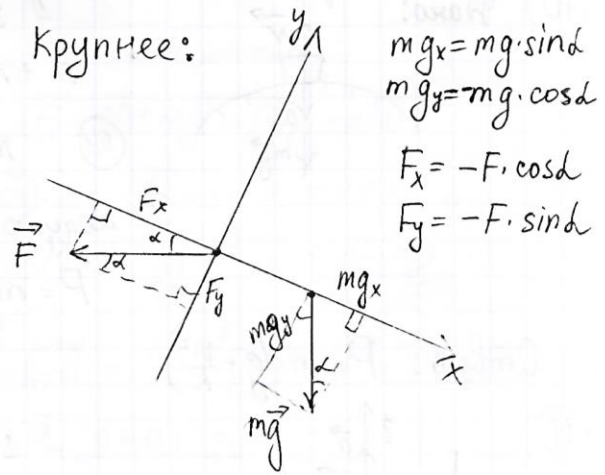 Крупнее:
y
mgx = mg·sinα
mgy = -mg·cosα
Fx = -F·cosα
Fy = -F·sinα
Fx
α
F
α
Fy
mgx
mgy
α
x
mg